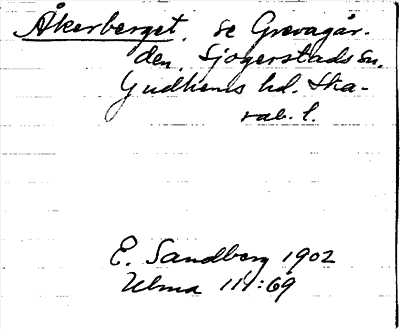 Åkerberget, se Grevagår-
den, Sjogerstads sn,
Gudhems hd. Ska-
rab. l.
E. Sandberg 1902
Ulma 111:69